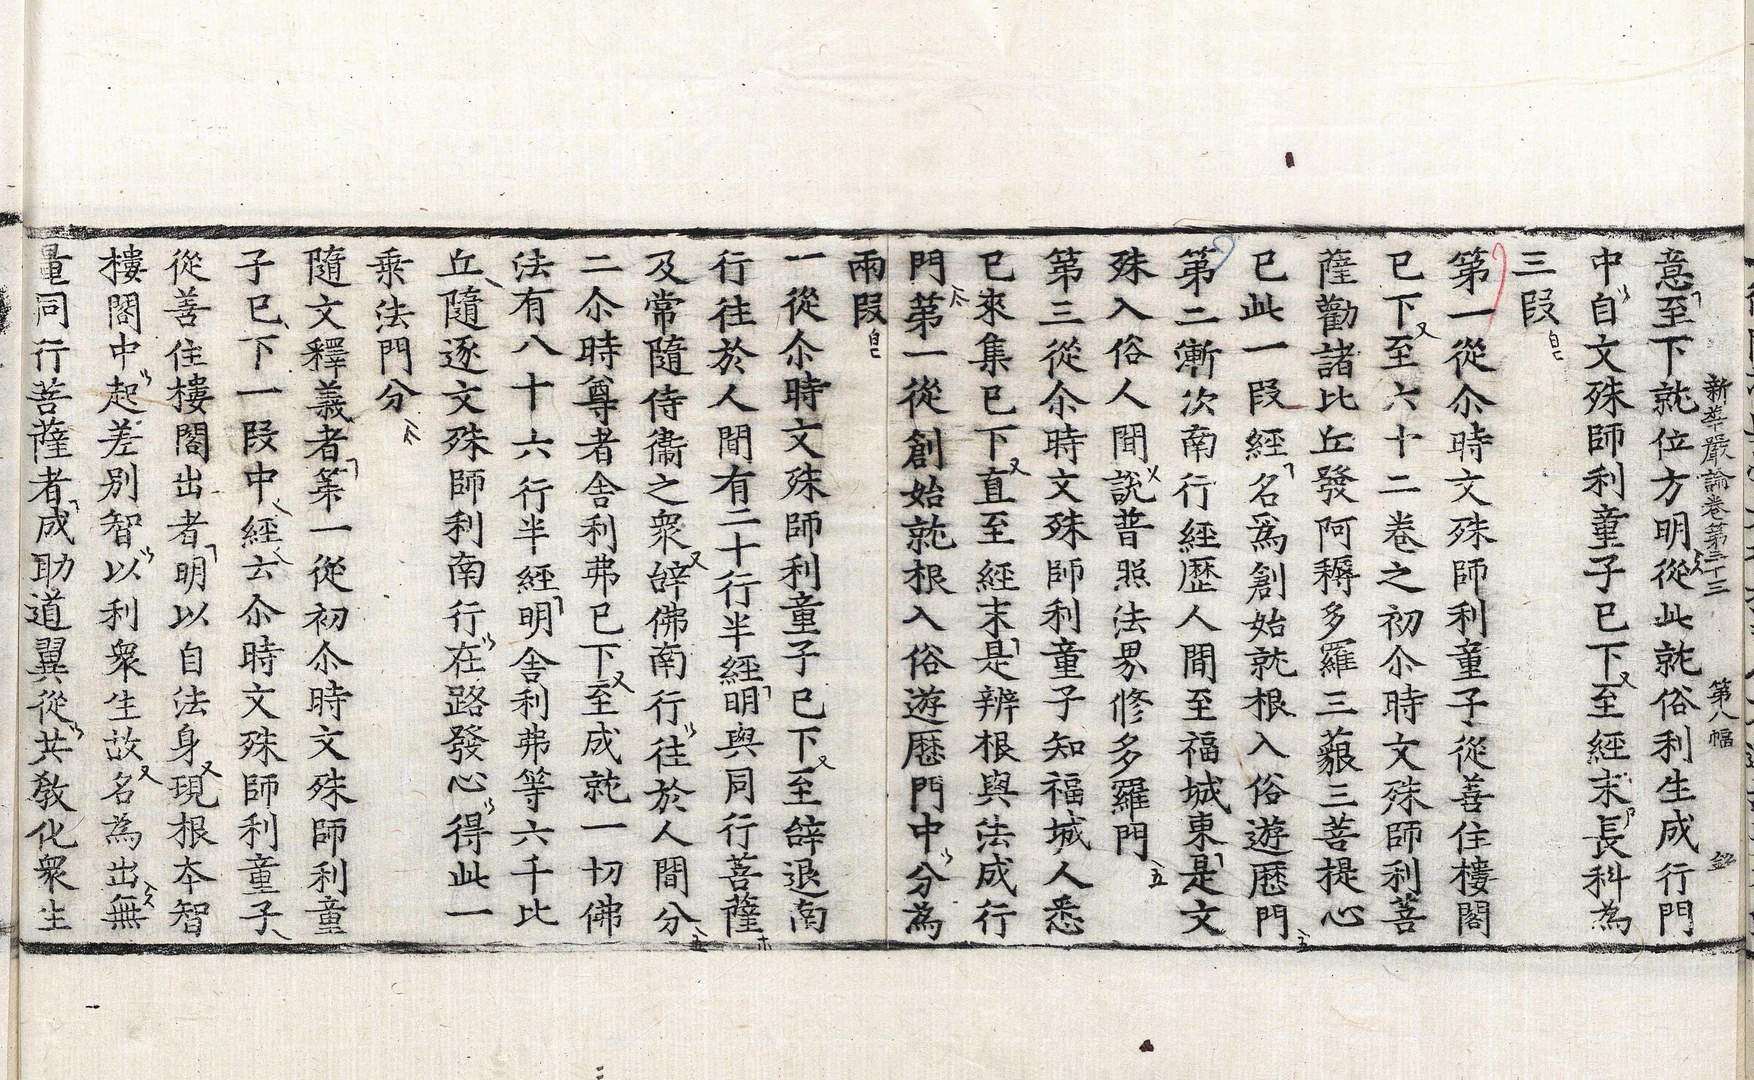 意至下就位方明從此就俗利生成行門
新華嚴論卷第三十三 第八幅
中自文殊師利童子已下至經末長科為
三段
第一從尒時文殊師利童子從善住樓閣
已下至六十二卷之初尒時文殊師利菩
薩勸諸比丘發阿耨多羅三藐三菩提心
已此一段經名爲創始就根入俗遊歷門
第二漸次南行經歷人間至福城東是文
殊入俗人間說普照法界修多羅門
第三從尒時文殊師利童子知福城人悉
已來集已下直至經末是辨根與法成行
門第一從創始就根入俗遊歷門中分為
兩段
一從尒時文殊師利童子已下至辝退南
行往於人間有二十行半經明與同行菩薩
及常隨侍衞之衆辝佛南行往於人間分
二尒時尊者舍利弗已下至成就一切佛
法有八十六行半經明舍利弗等六千比
丘隨逐文殊師利南行在路發心得此一
乘法門分
隨文釋義者第一從初尒時文殊師利童
子已下一段中經云尒時文殊師利童子
從善住樓閣出者明以自法身現根本智
樓閣中起差別智以利衆生故名為出無
量同行菩薩者成助道翼從共教化衆生